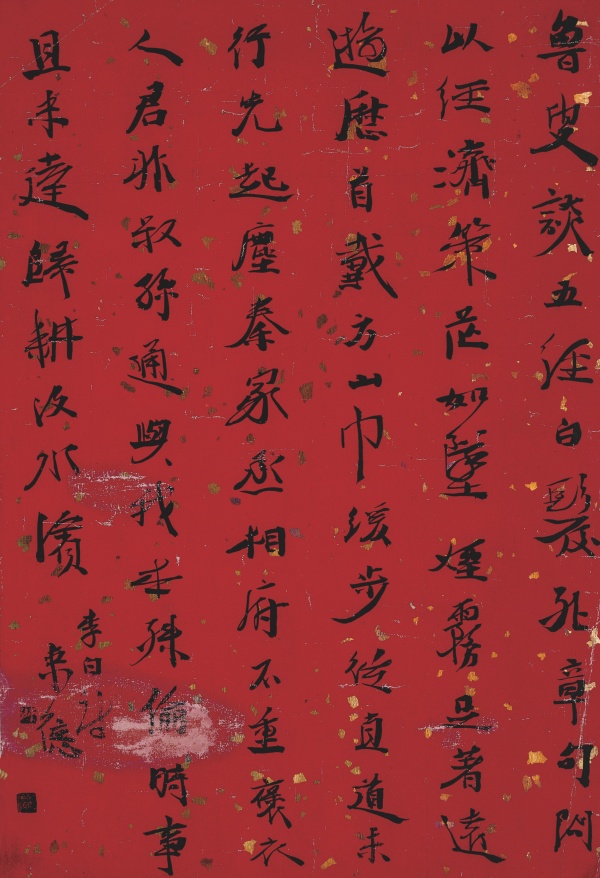 魯叟談五經白髮死章句問
以經濟策茫如墜煙霧足著遠
遊歷首戴方山巾緩步從直道未
行先起塵秦家丞相府不重褒衣
人君非叔孫通與我本殊倫時事
且未達歸耕汶水濱
李白詩